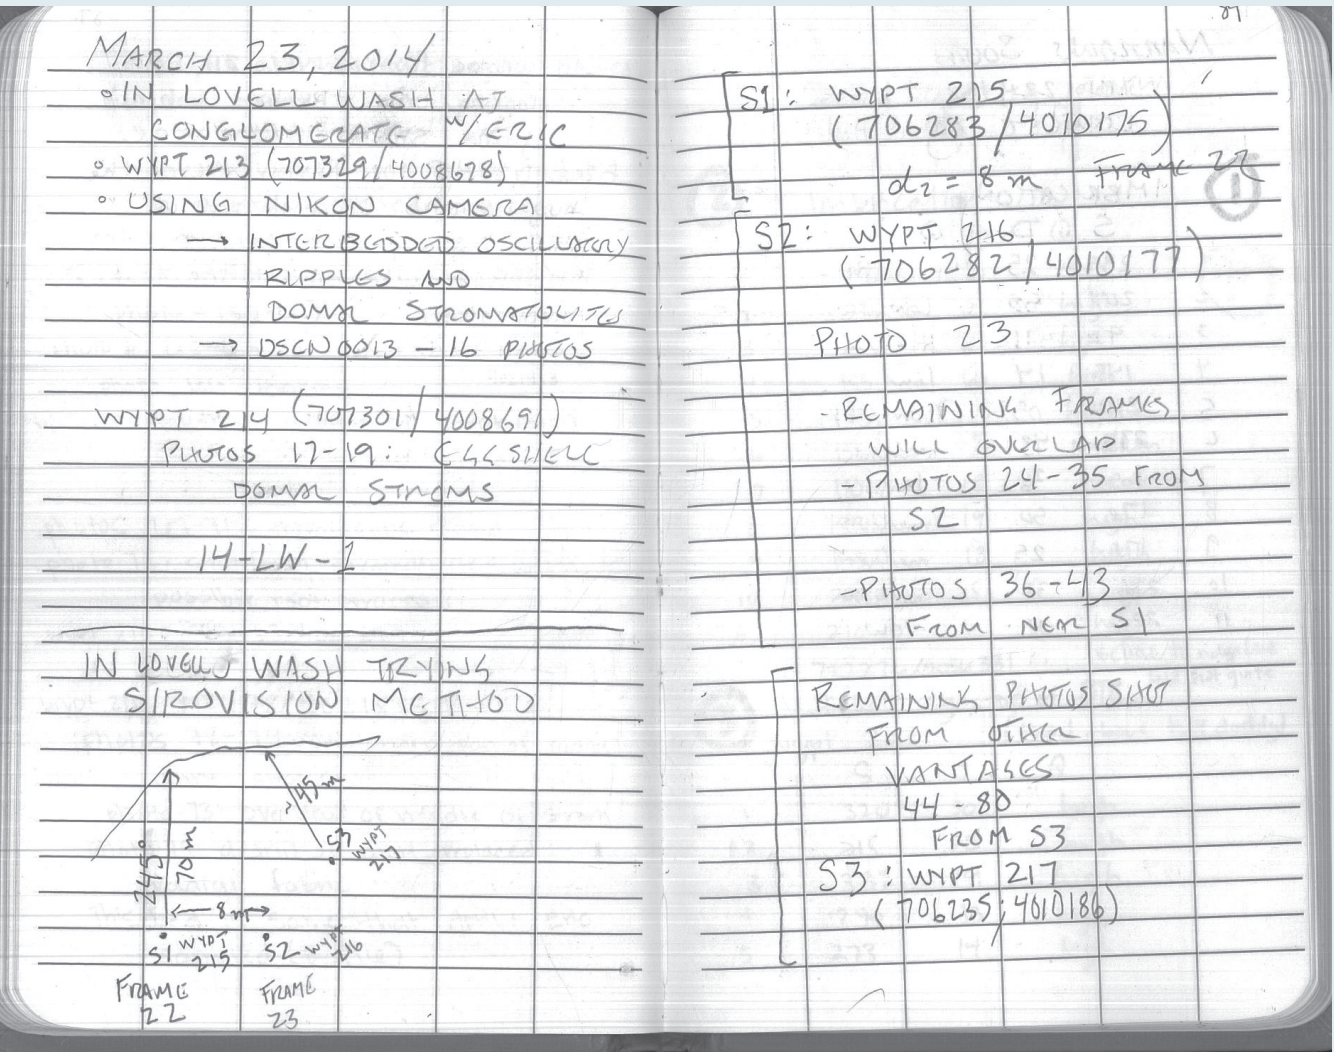 MARCH 23, 2014
• IN LOVELL WASH AT
CONGLOMERATE W/ ERIC
• WYPT 213 (707329/4008678)
• USING NIKON CAMERA
→ INTERBEDDED OSCILLATORY
RIPPLES AND
DOMAL STROMATOLITES
→ DSCN0013 - 16 PHOTOS
WYPT 214 (707301/4008691)
PHOTOS 17-19: EGGSHELL
DOMAL STROMS
14-LW-1
IN LOVELL WASH TRYING
SIROVISION METHOD
45 m
245°
70 m
S3
WYPT
217
← 8m →
S1 WYPT
215
S2 WYPT
216
FRAME
22
FRAME
23
S1: WYPT 215
(706283/4010175)
d2 = 8 m FRAME 22
S2: WYPT 216
(706282/4010177)
PHOTO 23
- REMAINING FRAMES
WILL OVERLAP
- PHOTOS 24-35 FROM
S2
- PHOTOS 36-43
FROM NEAR S1
REMAINING PHOTOS SHOT
FROM OTHER
VANTAGES
44-80
FROM S3
S3: WYPT 217
(706235; 4010186)